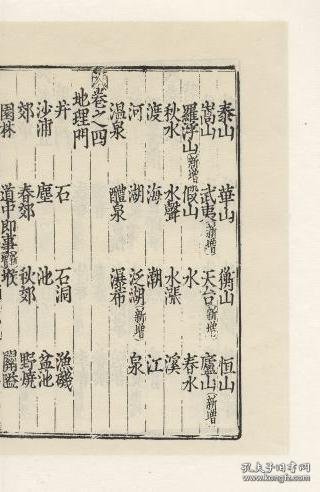 泰山 華山 衡山 恒山
嵩山 武夷新增 天台新增 廬山新增
羅浮山新增 假山 水 春水
秋水 水聲 水漲 溪
渡 海 潮 江
河 湖 泛湖新增 泉
温泉 醴泉 瀑布
卷之四
地理門
井 石 石洞 漁磯
沙浦 塵 池 盆池
郊 春郊 秋郊 野燒
園林 道中即事 堠 關隘
孔夫子旧书网
www.kongfz.com